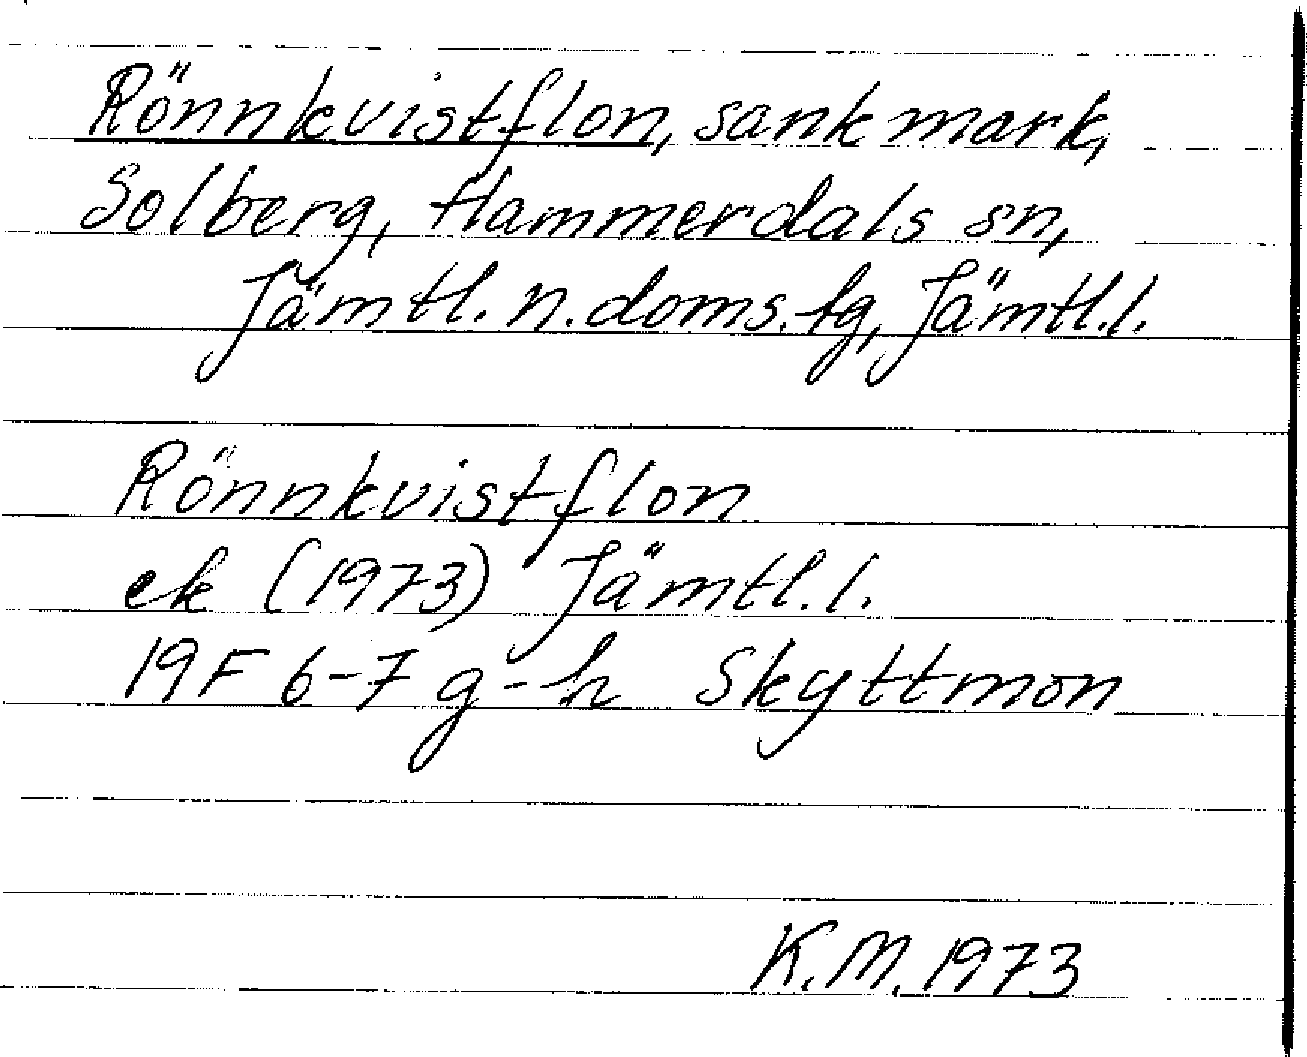 Rönnkvistflon, sankmark,
Solberg, Hammerdals sn,
Jämtl. n. doms. fg, Jämtl. l.
Rönnkvistflon
ek (1973) Jämtl. l.
19F 6-7 g-h Skyttmon
K.M. 1973